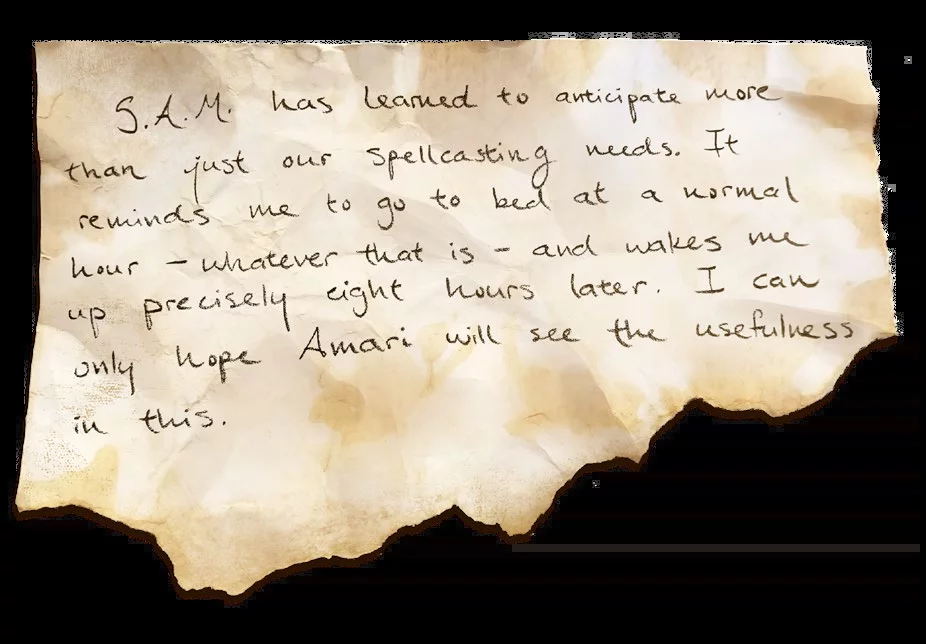 S.A.M. has learned to anticipate more
than just our spellcasting needs. It
reminds me to go to bed at a normal
hour - whatever that is - and wakes me
up precisely eight hours later. I can
only hope Amari will see the usefulness
in this.